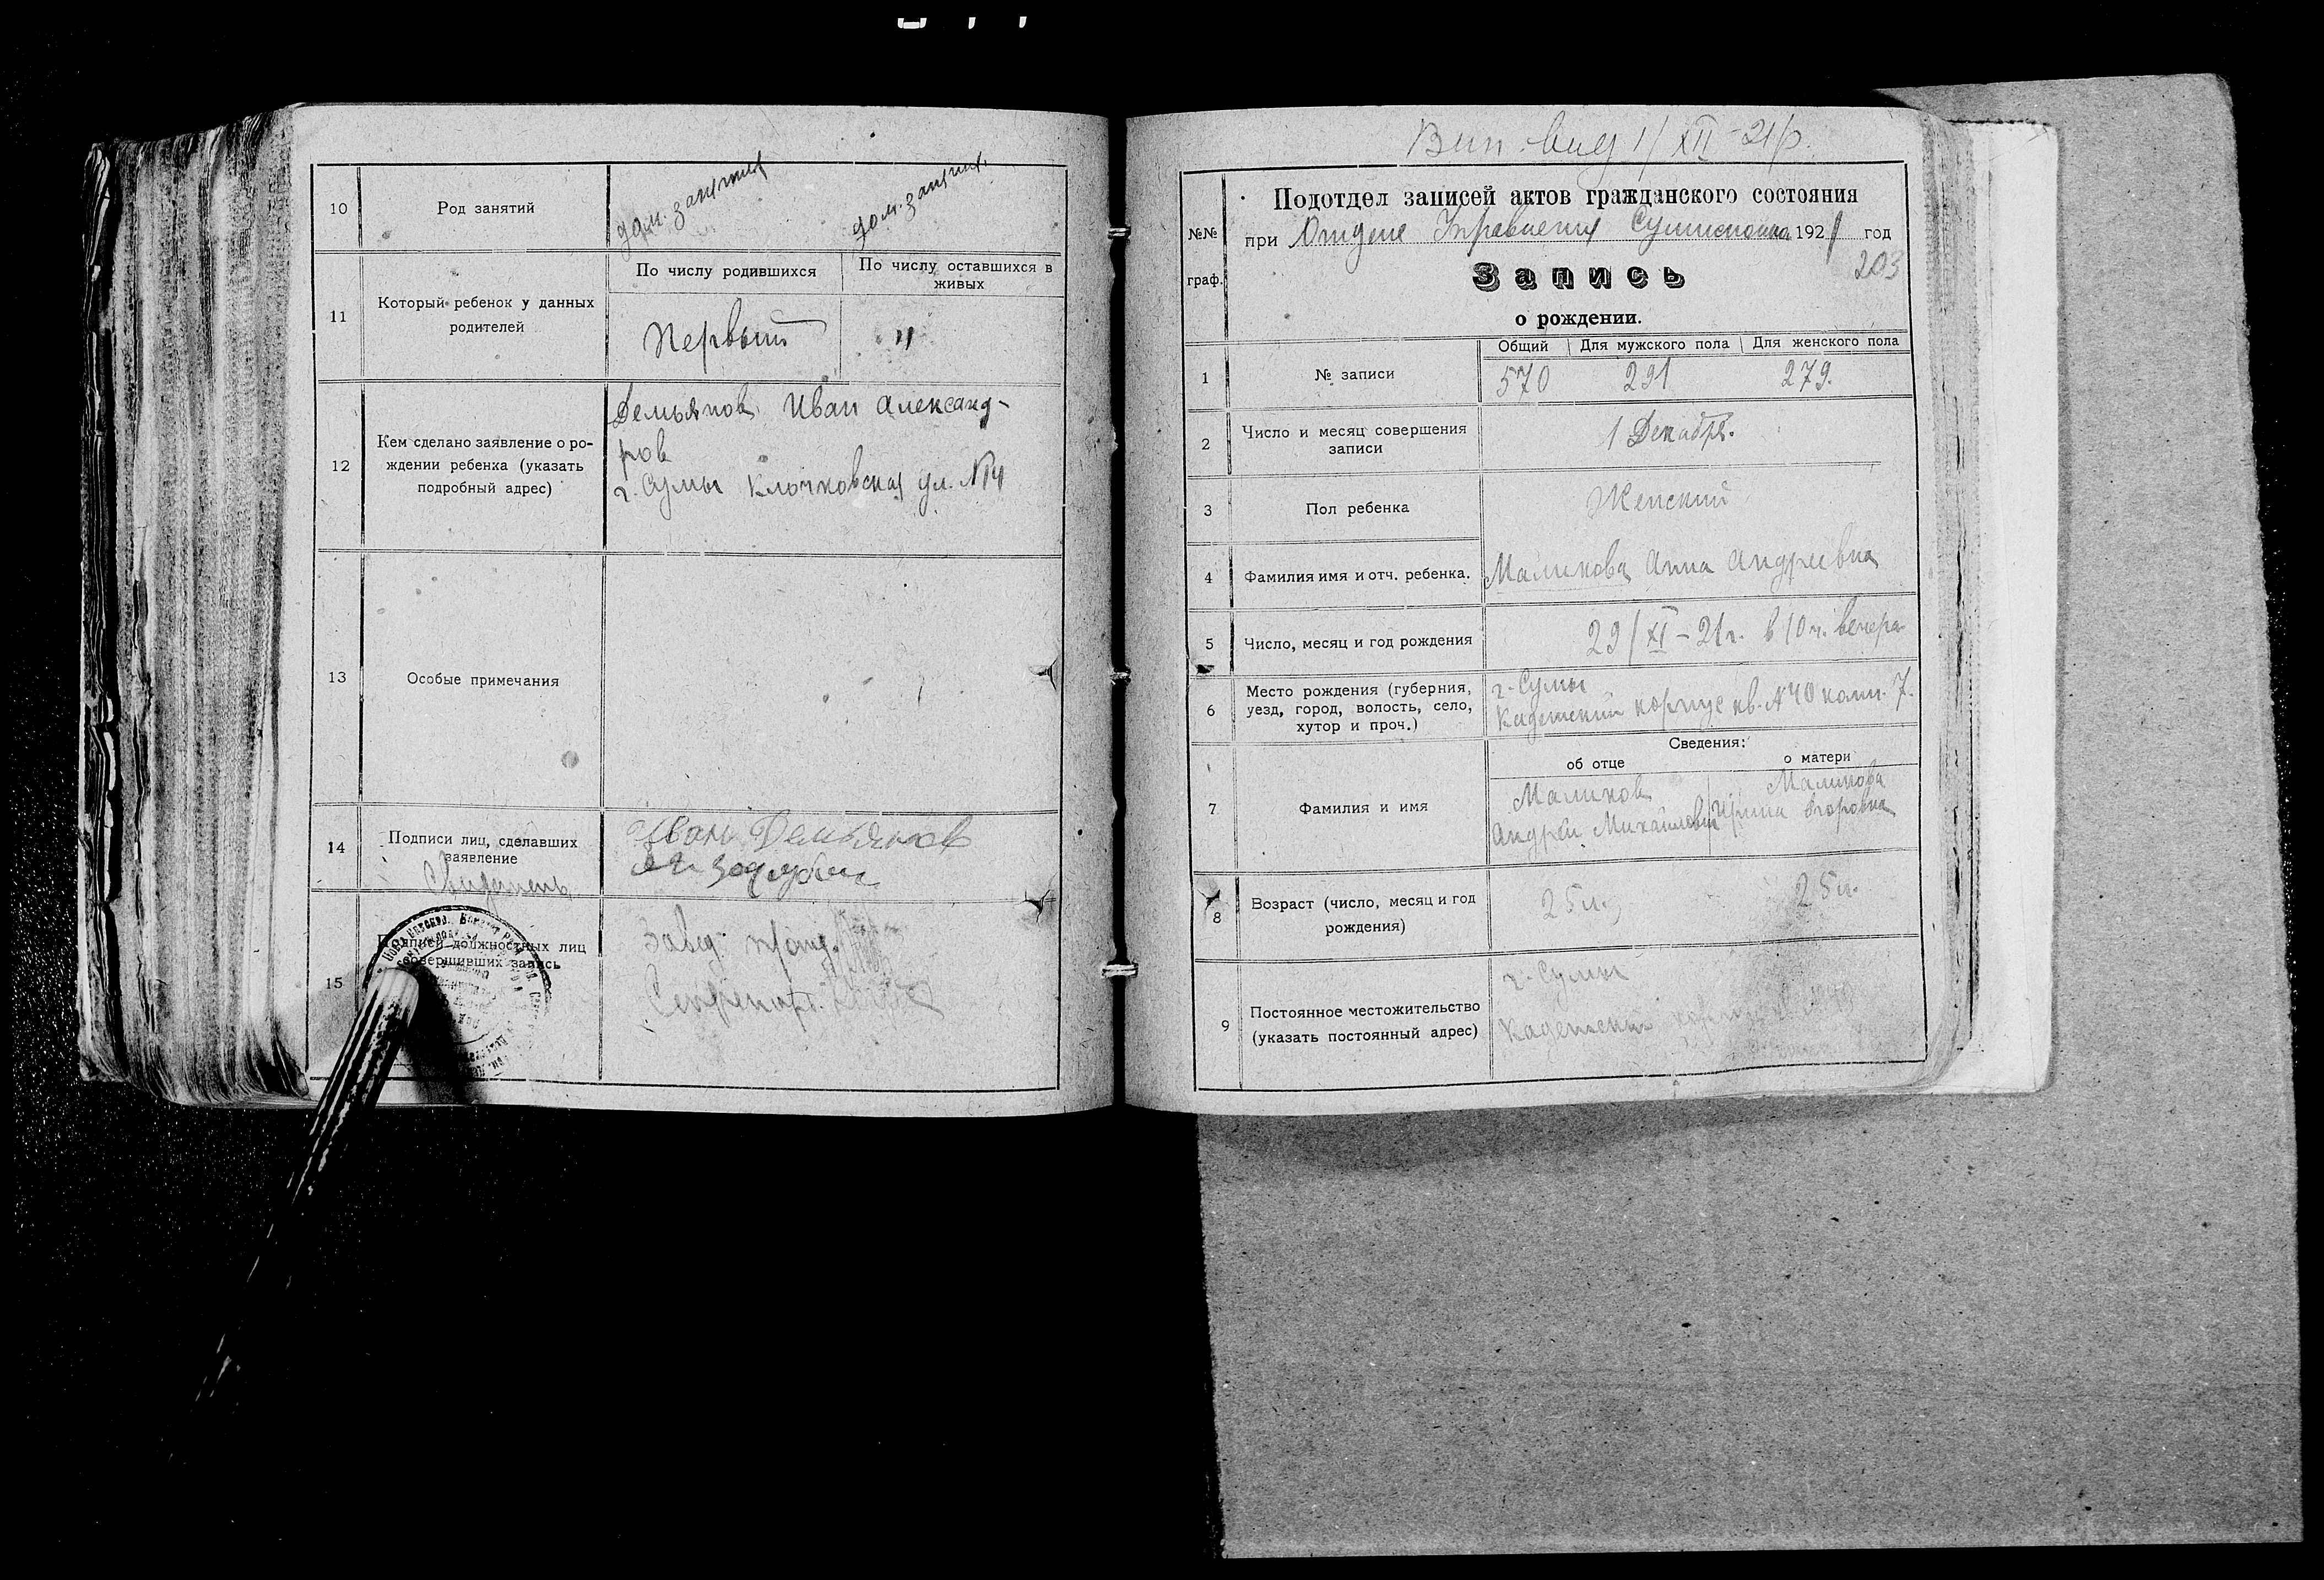 10
Род занятий
дом. занятия
дом. занятия.
11
Который ребенок у данных
родителей
По числу родившихся
По числу оставшихся в
живых
Первый
"
12
Кем сделано заявление о ро-
ждении ребенка (указать
подробный адрес)
Демьянов Иван Александ-
ров
г. Сумы Клочковская ул. №
13
Особые примечания
14
Подписи лиц, сделавших
заявление
Свидетель
Иван Демьянов
15
Подписи должностных лиц
совершивших запись
Завед.
Секретарь
Вип. вид 1/XII-21р.
№№
граф.
Подотдел записей актов гражданского состояния
при Отделе Управления на 1921 год
203
Запись
о рождении.
1
№ записи
Общий
Для мужского пола
Для женского пола
570
291
279.
2
Число и месяц совершения
записи
1 Декабря.
3
Пол ребенка
Женский
4
Фамилия имя и отч. ребенка.
Маликова Анна Андреевна
5
Число, месяц и год рождения
29/XI-21г. в 10 ч. вечера
6
Место рождения (губерния,
уезд, город, волость, село,
хутор и проч.)
г. Сумы
Кадетский корпус кв. № 40 комн. 7.
7
Фамилия и имя
Сведения:
об отце
о матери
Маликов
Андрей Михайлович
Маликова
Ирина Егоровна
8
Возраст (число, месяц и год
рождения)
25 л.
25 л.
9
Постоянное местожительство
(указать постоянный адрес)
г. Сумы
Кадетский корпус